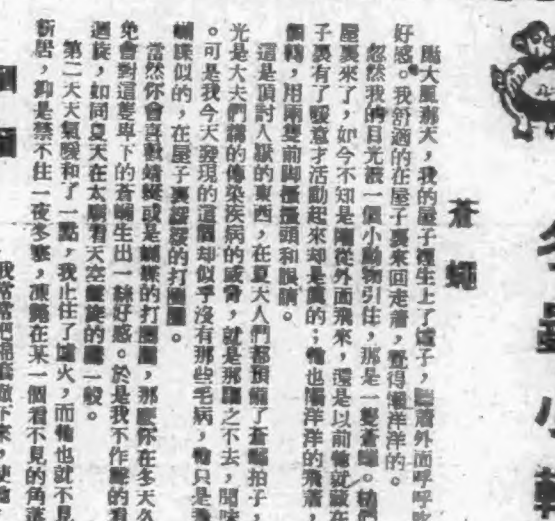 冬蟲小輯
蒼蠅
颳大風那天，我的屋子裡生上了爐子，聽着外面呼呼吹
好感。我舒適的在屋子裏來回走着，覺得懶洋洋的。
忽然我的目光被一個小動物引住，那是一隻蒼蠅。
屋裏來了，如今不知是剛從外面飛來，還是以前牠就藏在
子裏有了暖意才活動起來却是真的；牠也懶洋洋的飛着，
個轉，用兩隻前脚搔搔頭和眼睛。
這是頂討人厭的東西，在夏天人們都預備了蒼蠅拍子，
光是大夫們講的傳染疾病的威脅，就是那驅之不去，聞味
。可是我今天發現的這個却似乎沒有那些毛病，牠只是
蝴蝶似的，在屋子裏緩緩的打圈圈。
當然你會喜歡蜻蜓或是蝴蝶的打圈圈，那麼你在冬天久
免會對這隻卑下的蒼蠅生出一絲好感。於是我不作聲的看
迴旋，如同夏天在太廟看天空盤旋的鷹一般。
第二天天氣暖和了一點，我止住了爐火，而牠也就不見
新居，抑是禁不住一夜冬寒，凍斃在某一個看不見的角落
我常常把
下來，使